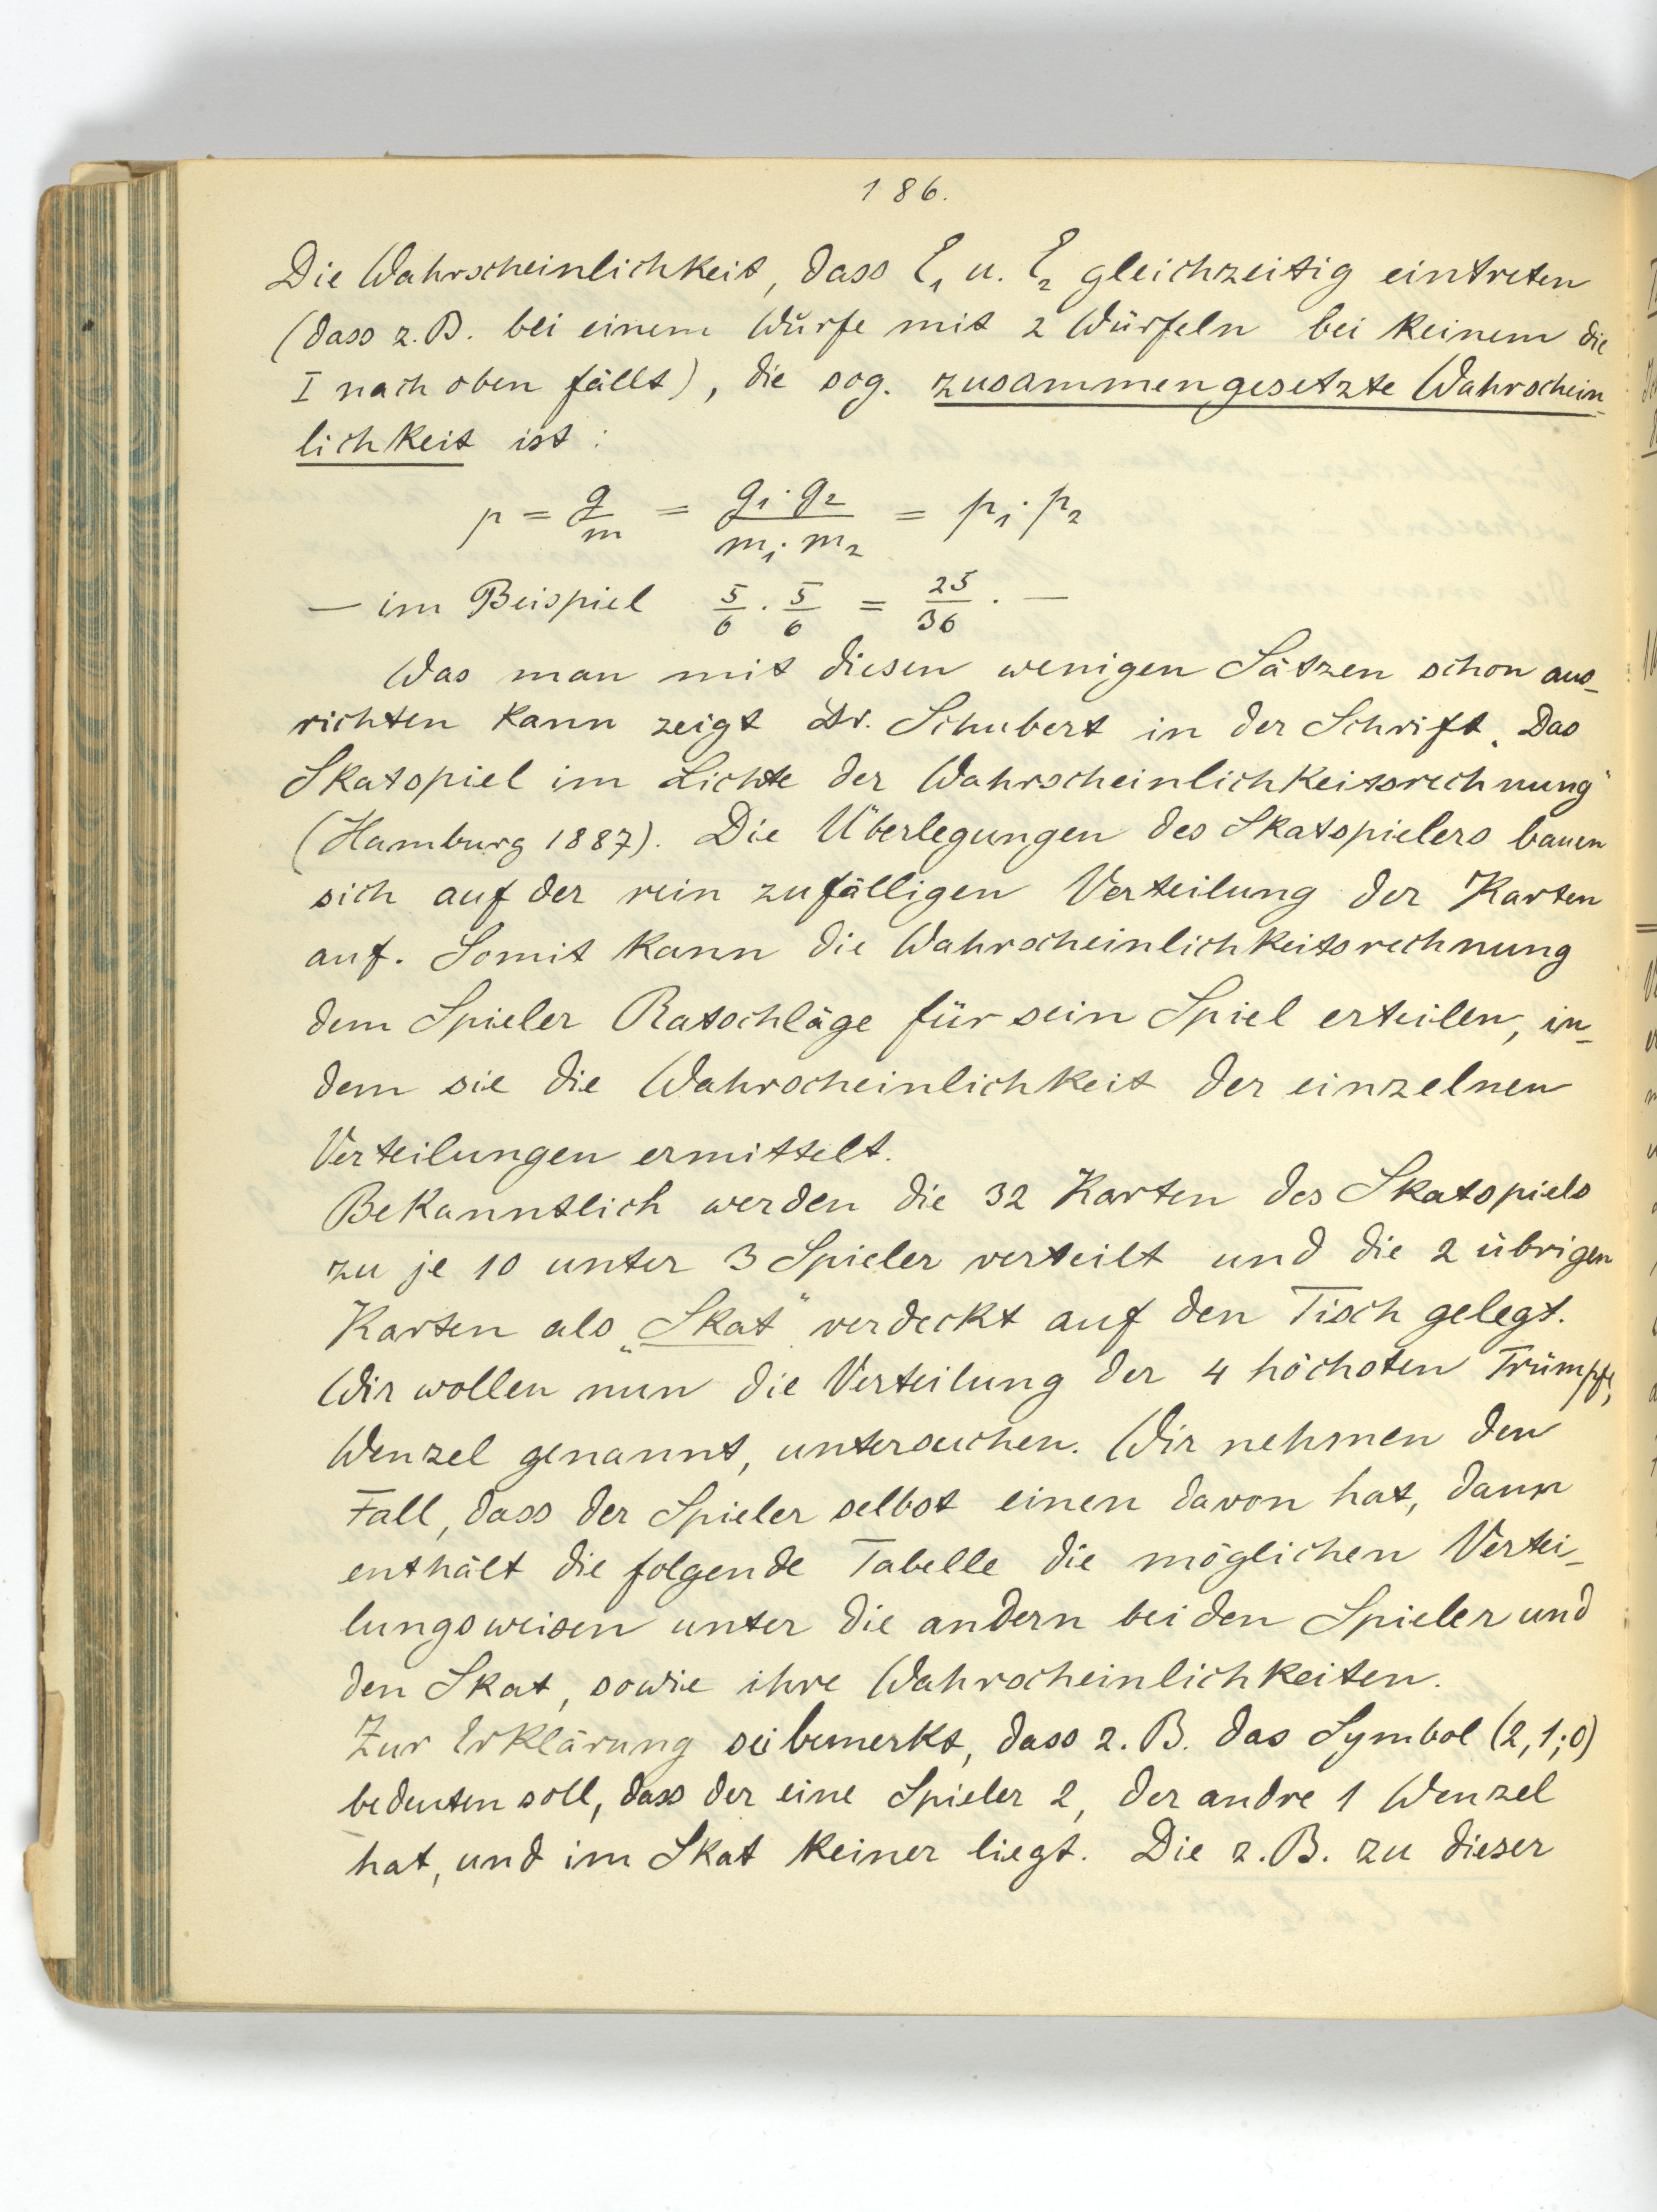 186.
Die Wahrscheinlichkeit, dass E₁ u. E₂ gleichzeitig eintreten
(dass z.B. bei einem Wurfe mit 2 Würfeln bei keinem die
I nach oben fällt), die sog. zusammengesetzte Wahrschein-
lichkeit ist:
p = g/m = g₁·g₂/m₁·m₂ = p₁·p₂
— im Beispiel 5/6 · 5/6 = 25/36. —
Was man mit diesen wenigen Sätzen schon aus-
richten kann zeigt Dr. Schubert in der Schrift „Das
Skatspiel im Lichte der Wahrscheinlichkeitsrechnung"
(Hamburg 1887). Die Überlegungen des Skatspielers bauen
sich auf der rein zufälligen Verteilung der Karten
auf. Somit kann die Wahrscheinlichkeitsrechnung
dem Spieler Ratschläge für sein Spiel erteilen, in-
dem sie die Wahrscheinlichkeit der einzelnen
Verteilungen ermittelt.
Bekanntlich werden die 32 Karten des Skatspiels
zu je 10 unter 3 Spieler verteilt und die 2 übrigen
Karten als „Skat" verdeckt auf den Tisch gelegt.
Wir wollen nun die Verteilung der 4 höchsten Trümpfe,
Wenzel genannt, untersuchen. Wir nehmen den
Fall, dass der Spieler selbst einen davon hat, dann
enthält die folgende Tabelle die möglichen Vertei-
lungsweisen unter die andern beiden Spieler und
den Skat, sowie ihre Wahrscheinlichkeiten.
Zur Erklärung sei bemerkt, dass z.B. das Symbol (2,1;0)
bedeuten soll, dass der eine Spieler 2, der andre 1 Wenzel
hat, und im Skat keiner liegt. Die z.B. zu dieser